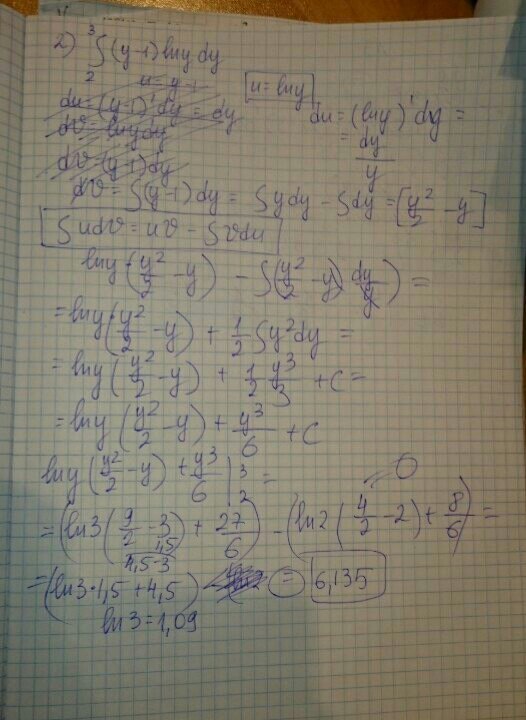 2) ∫₂³ (y-1) ln y dy
u = y-1
u = ln y
du = (y-1)' dy = dy
du = (ln y)' dy =
dV = ln y dy
= dy/y
dV = (y-1) dy
dV = ∫(y-1) dy = ∫y dy - ∫dy = [y²/2 - y]
∫u dV = uV - ∫V du
ln y (y²/2 - y) - ∫(y²/2 - y) dy/y) =
= ln y (y²/2 - y) + 1/2 ∫y² dy =
= ln y (y²/2 - y) + 1/2 y³/3 + C =
= ln y (y²/2 - y) + y³/6 + C
ln y (y²/2 - y) + y³/6 |₂³ =
0
= (ln 3 (9/2 - 3) + 27/6) - (ln 2 (4/2 - 2) + 8/6) =
1,5
4,5-3
= (ln 3 · 1,5 + 4,5) = 6,135
ln 3 = 1,09